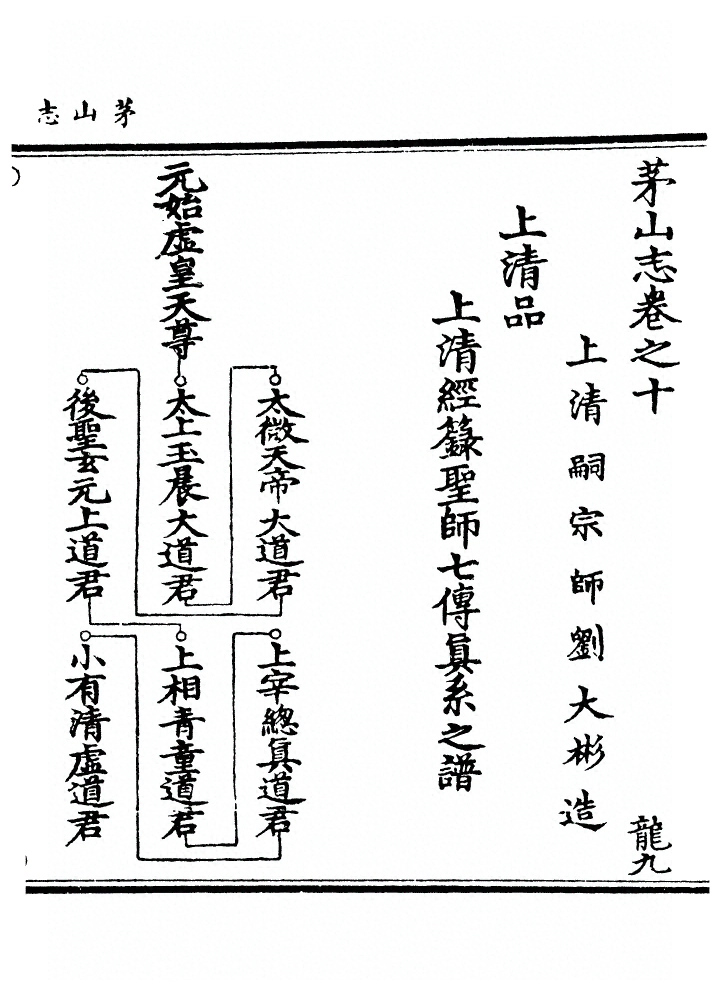 茅山志
茅山志卷之十
龍九
上清嗣宗師劉大彬造
上清品
上清經籙聖師七傳真系之譜
元始虛皇天尊
太微天帝大道君
太上玉晨大道君
後聖玄元上道君
上宰總真道君
上相青童道君
小有清虛道君